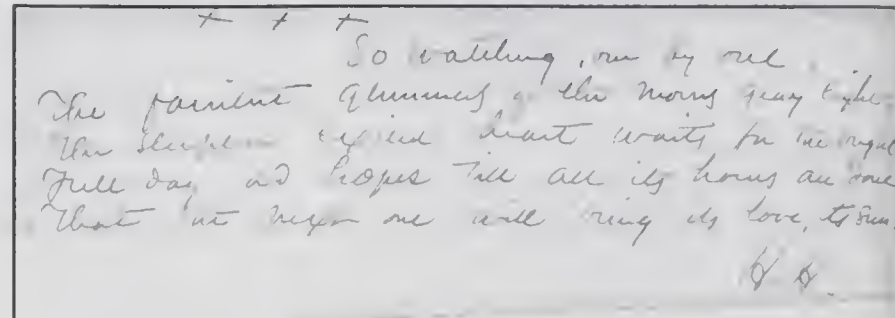 + + +
So watching, one by one
The faintest glimmers of the morns gray light
The sleepless exiled heart waits for the
Full day and hopes till all its hours are
That the next one will bring its love, its sun.
H H.